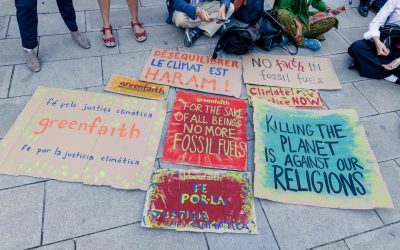 DÉSÉQUILIBRER
LE CLIMAT EST
HARAM!
NO FAITH IN
FOSSIL FUELS
greenfaith
Climate
Justice NOW
fé pela justiça climática
greenfaith
fe por la justicia climática
greenfaith
FOR THE SAKE
OF ALL BEINGS
NO MORE
FOSSIL FUELS
greenfaith
KILLING THE
PLANET
IS AGAINST OUR
RELIGIONS
greenfaith
FE
POR LA
JUSTICIA
CLIMÁTICA